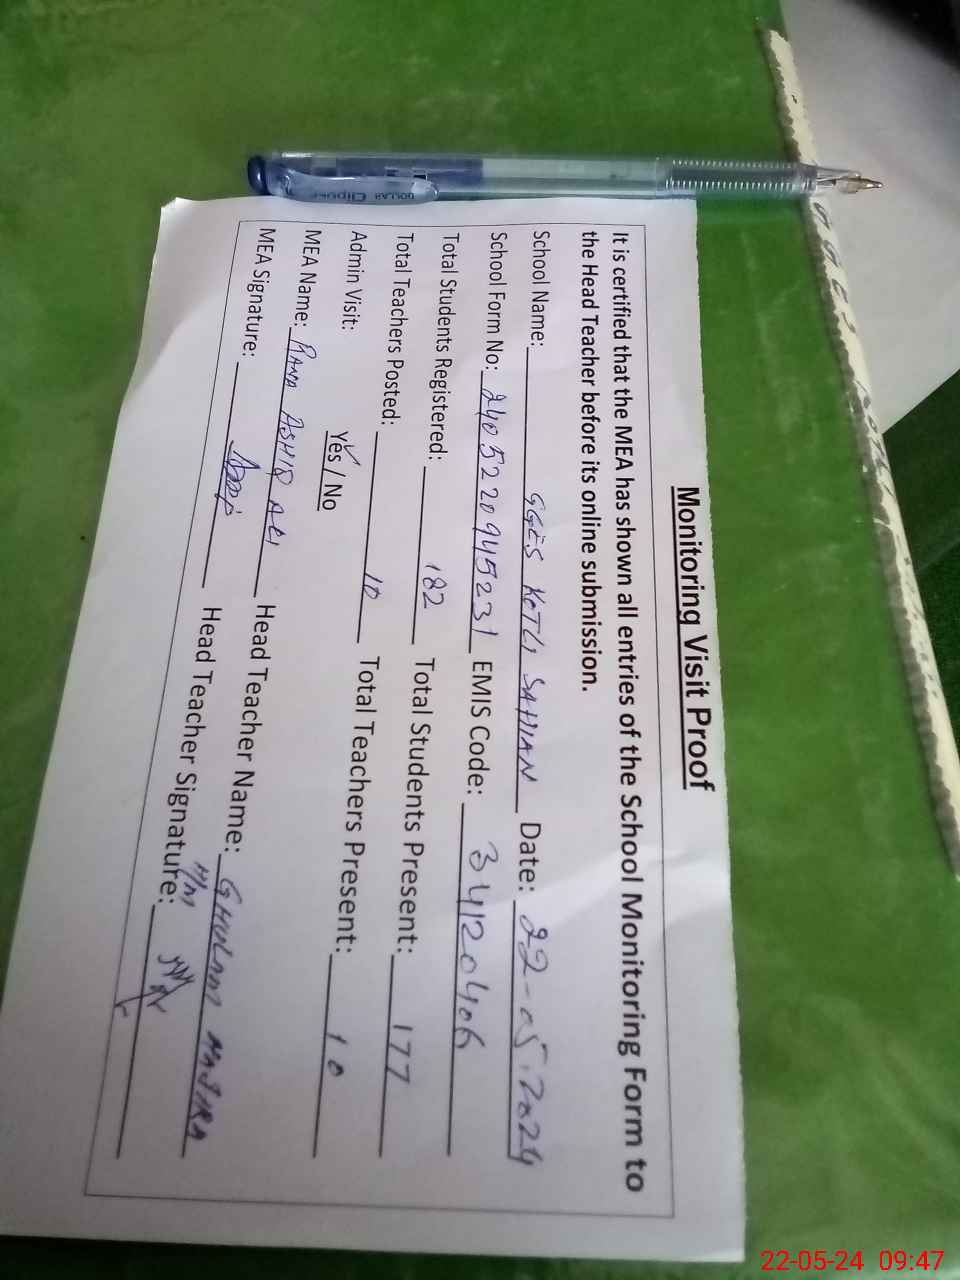 Monitoring Visit Proof
It is certified that the MEA has shown all entries of the School Monitoring Form to
the Head Teacher before its online submission.
School Name: GGES KOTLI SAHIAN Date: 22-05-2024
School Form No: 240522094523 1 EMIS Code: 34120406
Total Students Registered: 182 Total Students Present: 177
Total Teachers Posted: 10 Total Teachers Present: 10
Admin Visit: Yes / No
MEA Name: RANA ASHIQ ALI Head Teacher Name: GHULAM HAJIRA
MEA Signature: Head Teacher Signature: H/M
DOLLAR Clipper
22-05-24 09:47